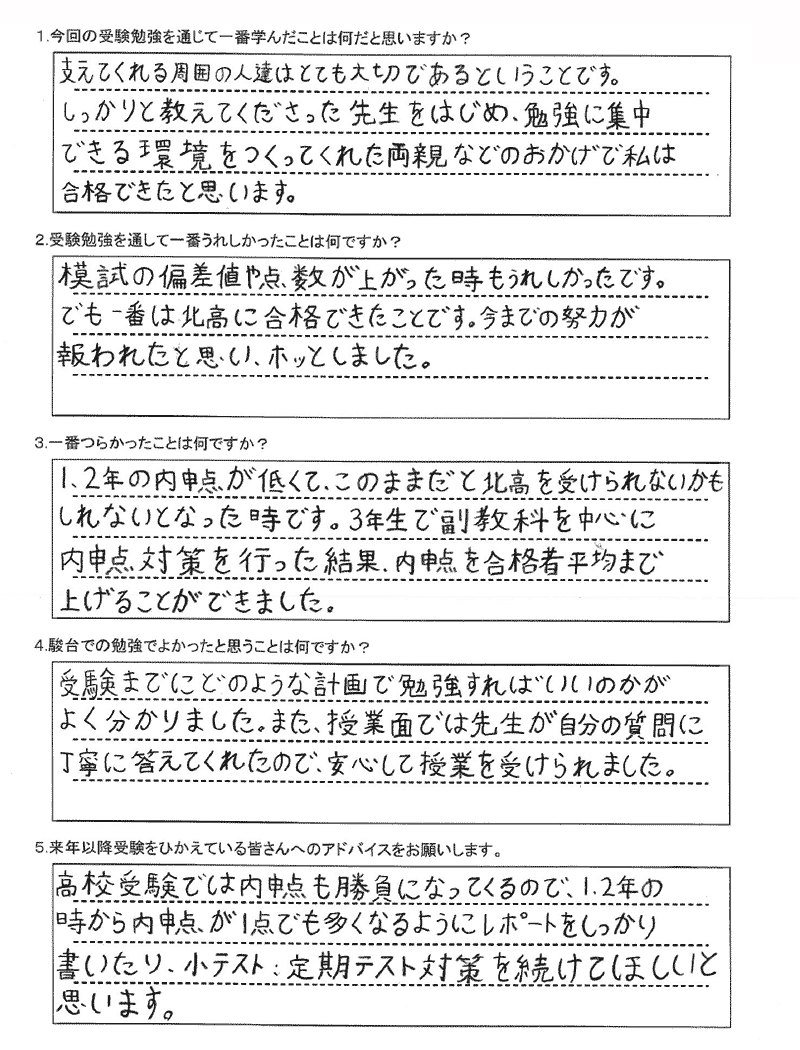 1.今回の受験勉強を通じて一番学んだことは何だと思いますか？
支えてくれる周囲の人達はとても大切であるということです。
しっかりと教えてくださった先生をはじめ、勉強に集中
できる環境をつくってくれた両親などのおかげで私は
合格できたと思います。
2.受験勉強を通して一番うれしかったことは何ですか？
模試の偏差値や点数が上がった時もうれしかったです。
でも一番は北高に合格できたことです。今までの努力が
報われたと思い、ホッとしました。
3.一番つらかったことは何ですか？
1、2年の内申点が低くて、このままだと北高を受けられないかも
しれないとなった時です。3年生で副教科を中心に
内申点対策を行った結果、内申点を合格者平均まで
上げることができました。
4.駿台での勉強でよかったと思うことは何ですか？
受験までにどのような計画で勉強すればいいのかが
よく分かりました。また、授業面では先生が自分の質問に
丁寧に答えてくれたので、安心して授業を受けられました。
5.来年以降受験をひかえている皆さんへのアドバイスをお願いします。
高校受験では内申点も勝負になってくるので、1、2年の
時から内申点が1点でも多くなるようにレポートをしっかり
書いたり、小テスト、定期テスト対策を続けてほしいと
思います。